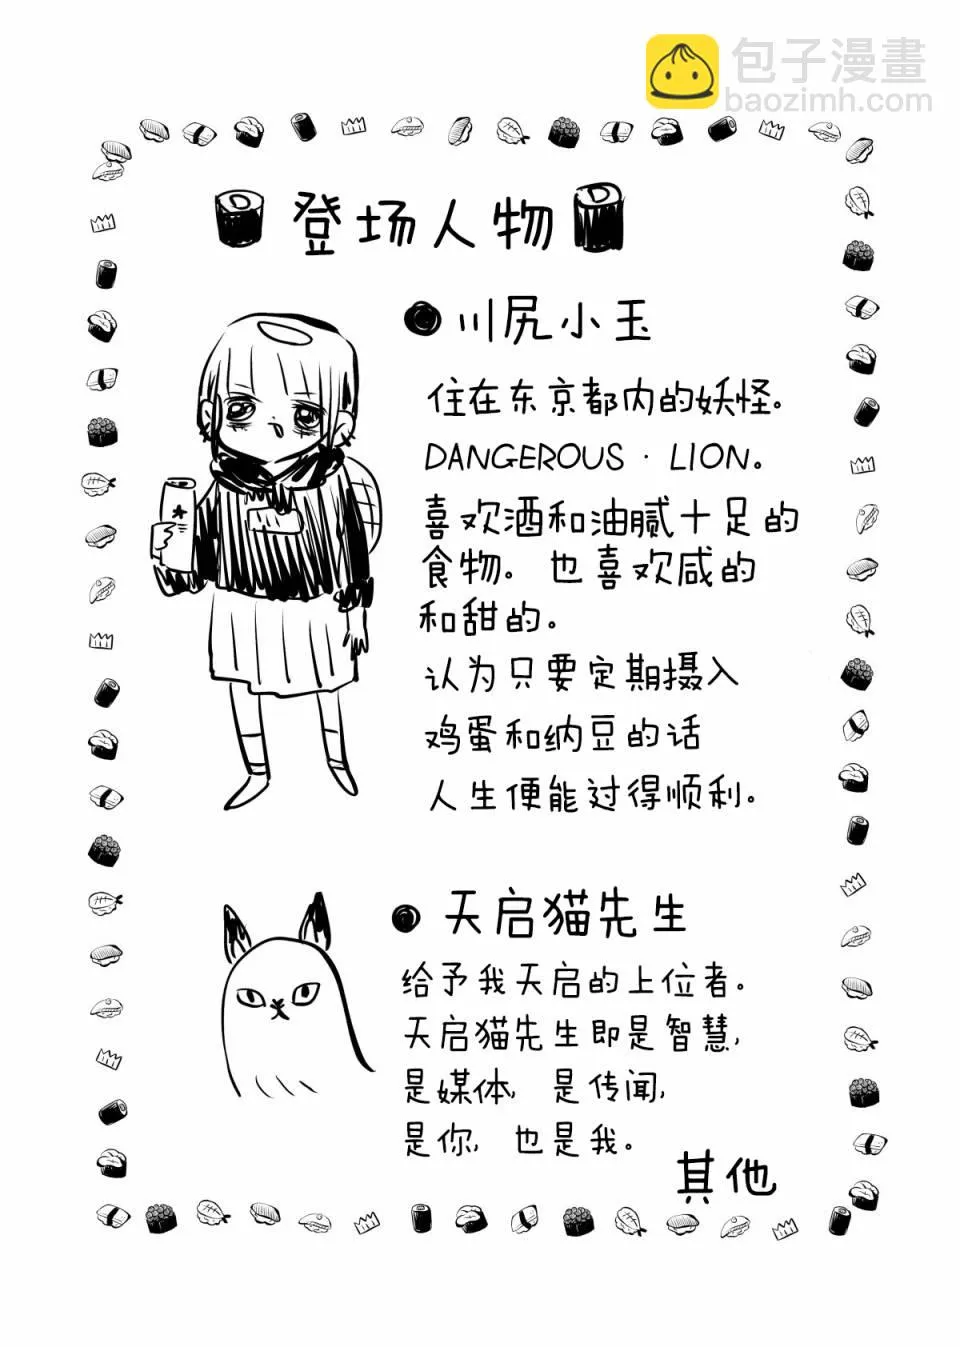 包子漫畫
baozimh.com
登场人物
川尻小玉
住在东京都内的妖怪。
DANGEROUS · LION。
喜欢酒和油腻十足的
食物。也喜欢咸的
和甜的。
认为只要定期摄入
鸡蛋和纳豆的话
人生便能过得顺利。
天启猫先生
给予我天启的上位者。
天启猫先生即是智慧,
是媒体, 是传闻,
是你, 也是我。
其他